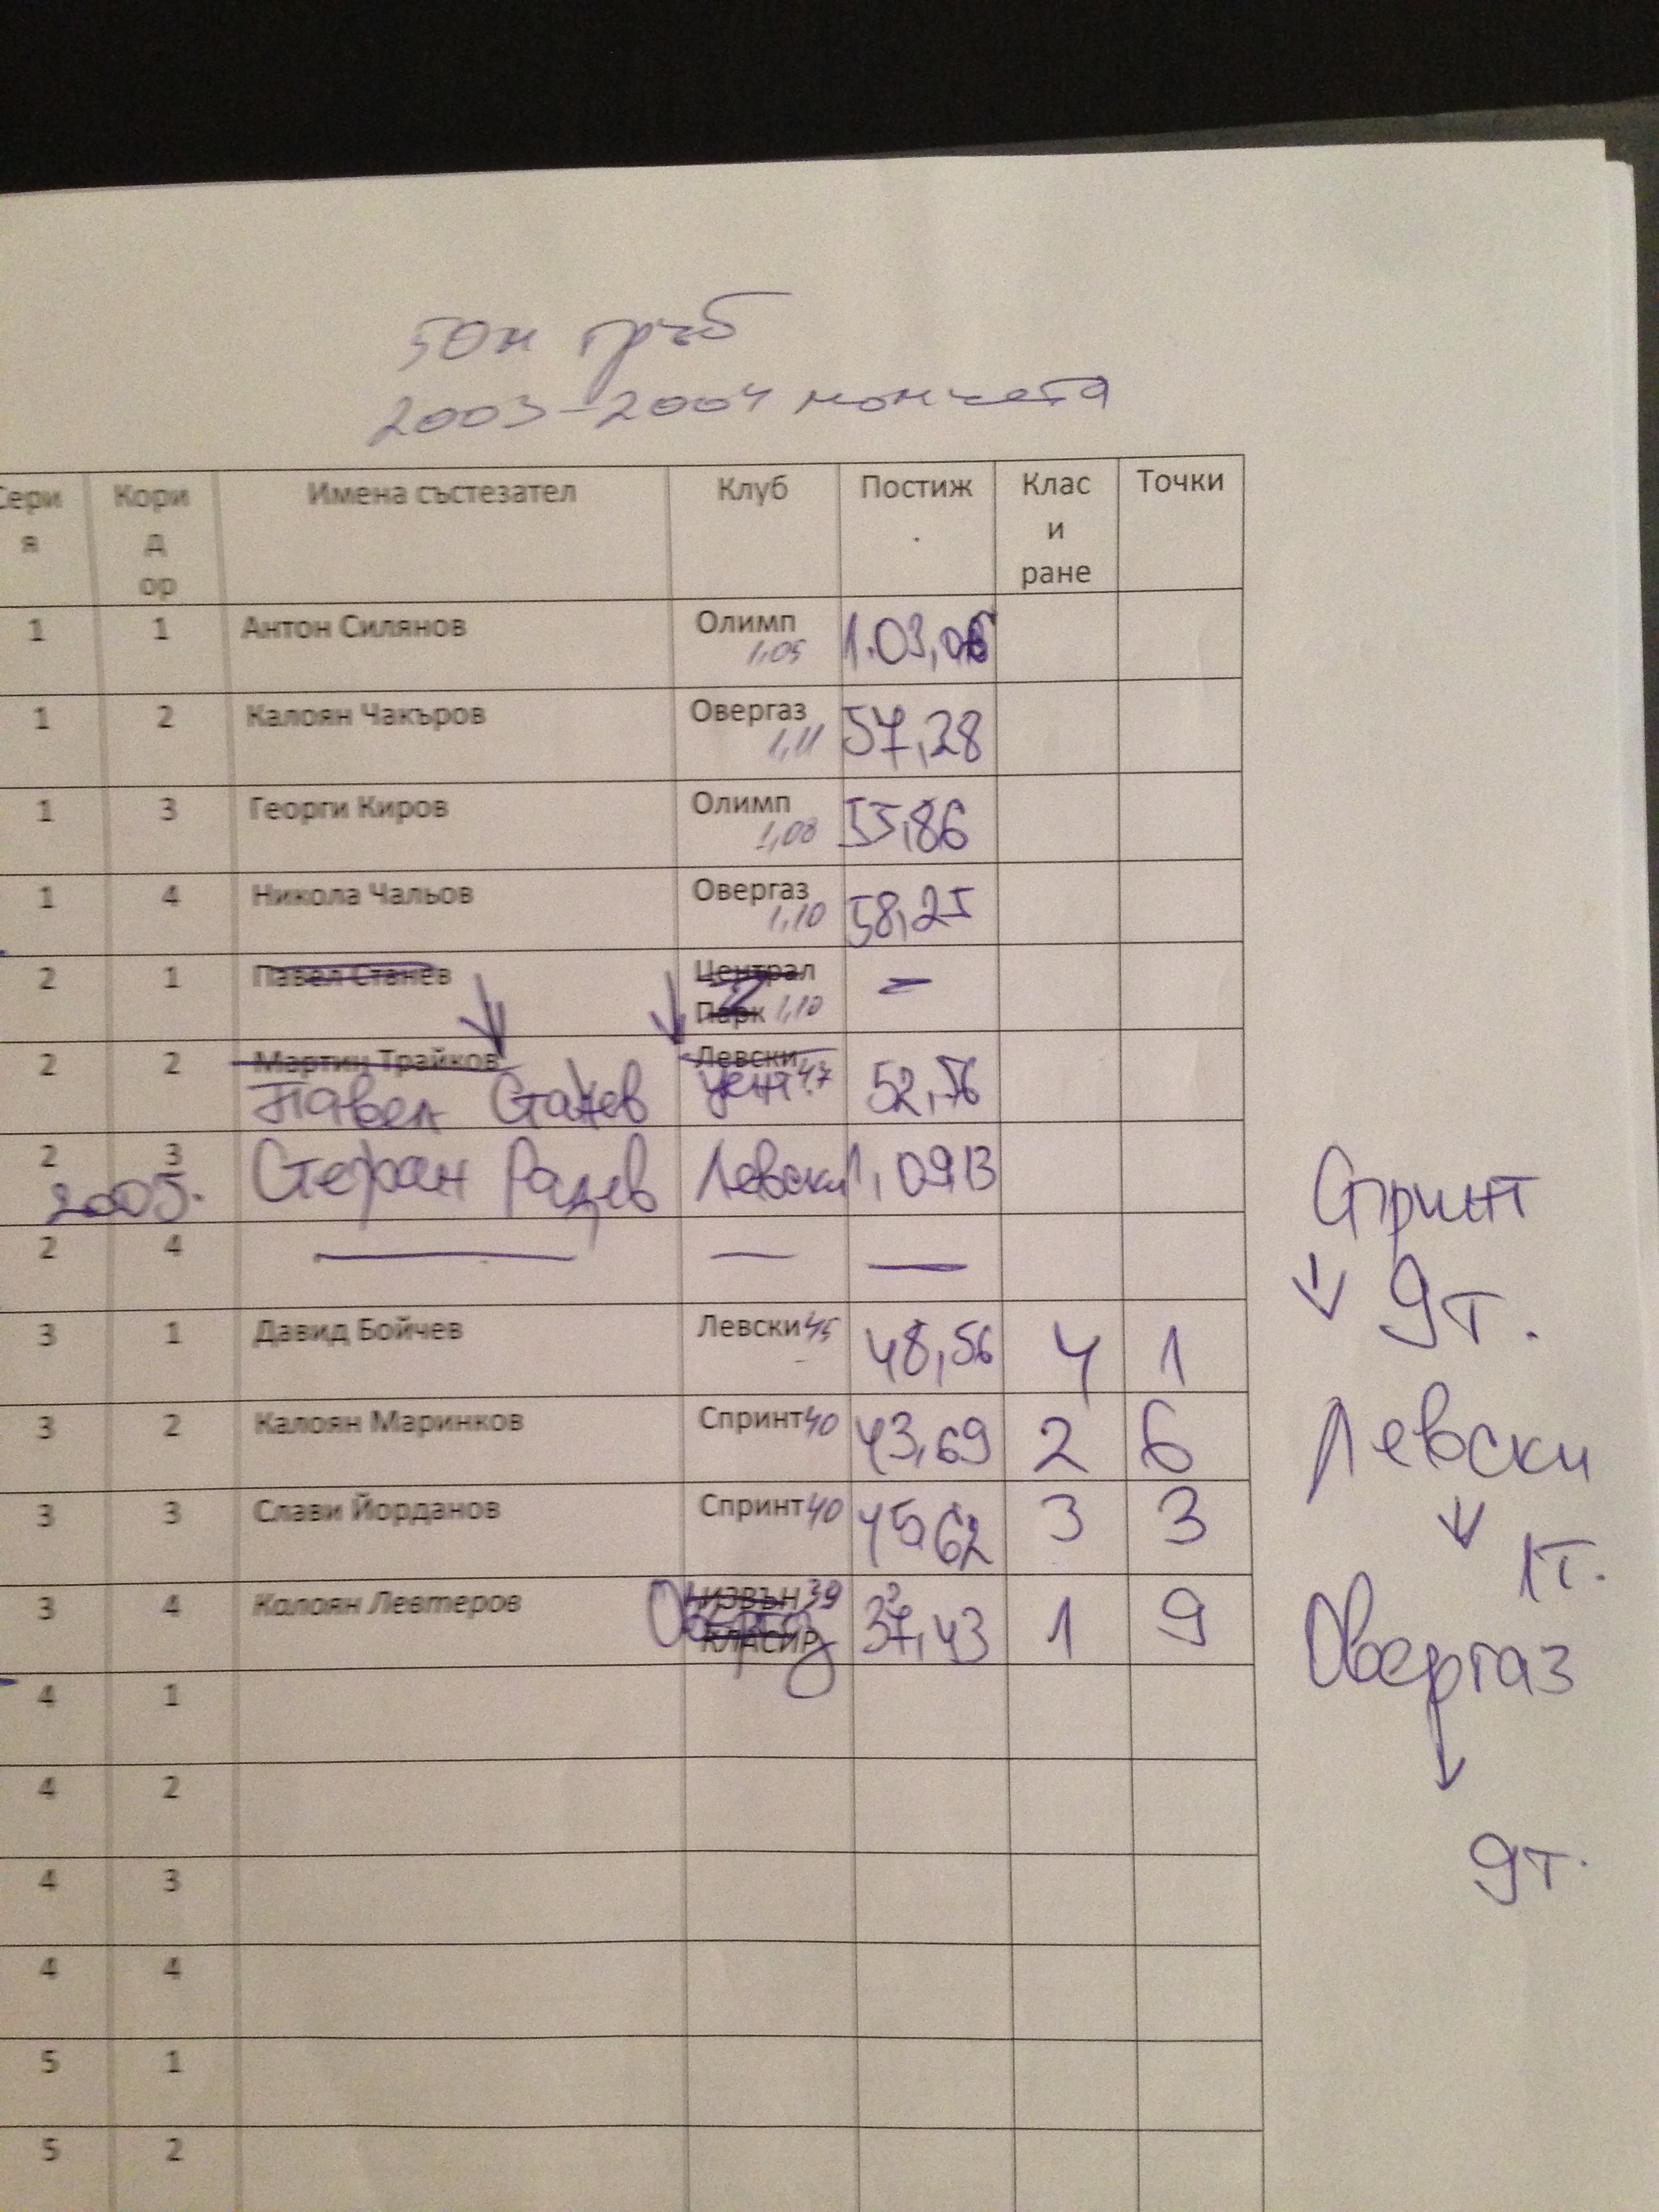 50м гръб
2003-2004 момчета
Сери я Кори д ор Имена състезател Клуб Постиж . Клас и ране Точки
1 1 Антон Силянов Олимп 1,05 1.03,06
1 2 Калоян Чакъров Овергаз 1,11 57,28
1 3 Георги Киров Олимп 1,08 55,86
1 4 Никола Чальов Овергаз 1,10 58,25
2 1 Павел Станев Централ Парк 1,10 –
2 2 Мартин Трайков Левски 47 52,56
Павел Станев Цент.
2 3 Стефан Радев Левски 1,0913
2005.
2 4 — — —
3 1 Давид Бойчев Левски 45 48,56 4 1
3 2 Калоян Маринков Спринт 40 43,69 2 6
3 3 Слави Йорданов Спринт 40 4562 3 3
3 4 Калоян Левтеров ИЗВЪН КЛАСИР 39 Овергаз 37,43 1 9
4 1
4 2
4 3
4 4
5 1
5 2
Спринт
↓ 9т.
Левски
↓ 1т.
Овергаз
↓
9т.